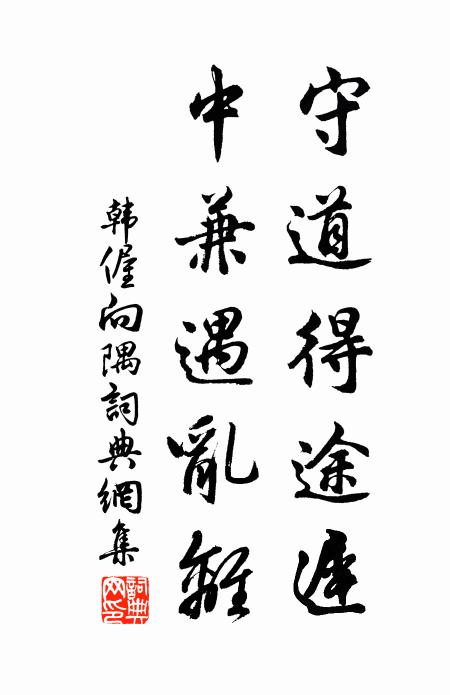 守道得途遲
中兼遇亂離
韩偓向隅詞典網集
詞典網印